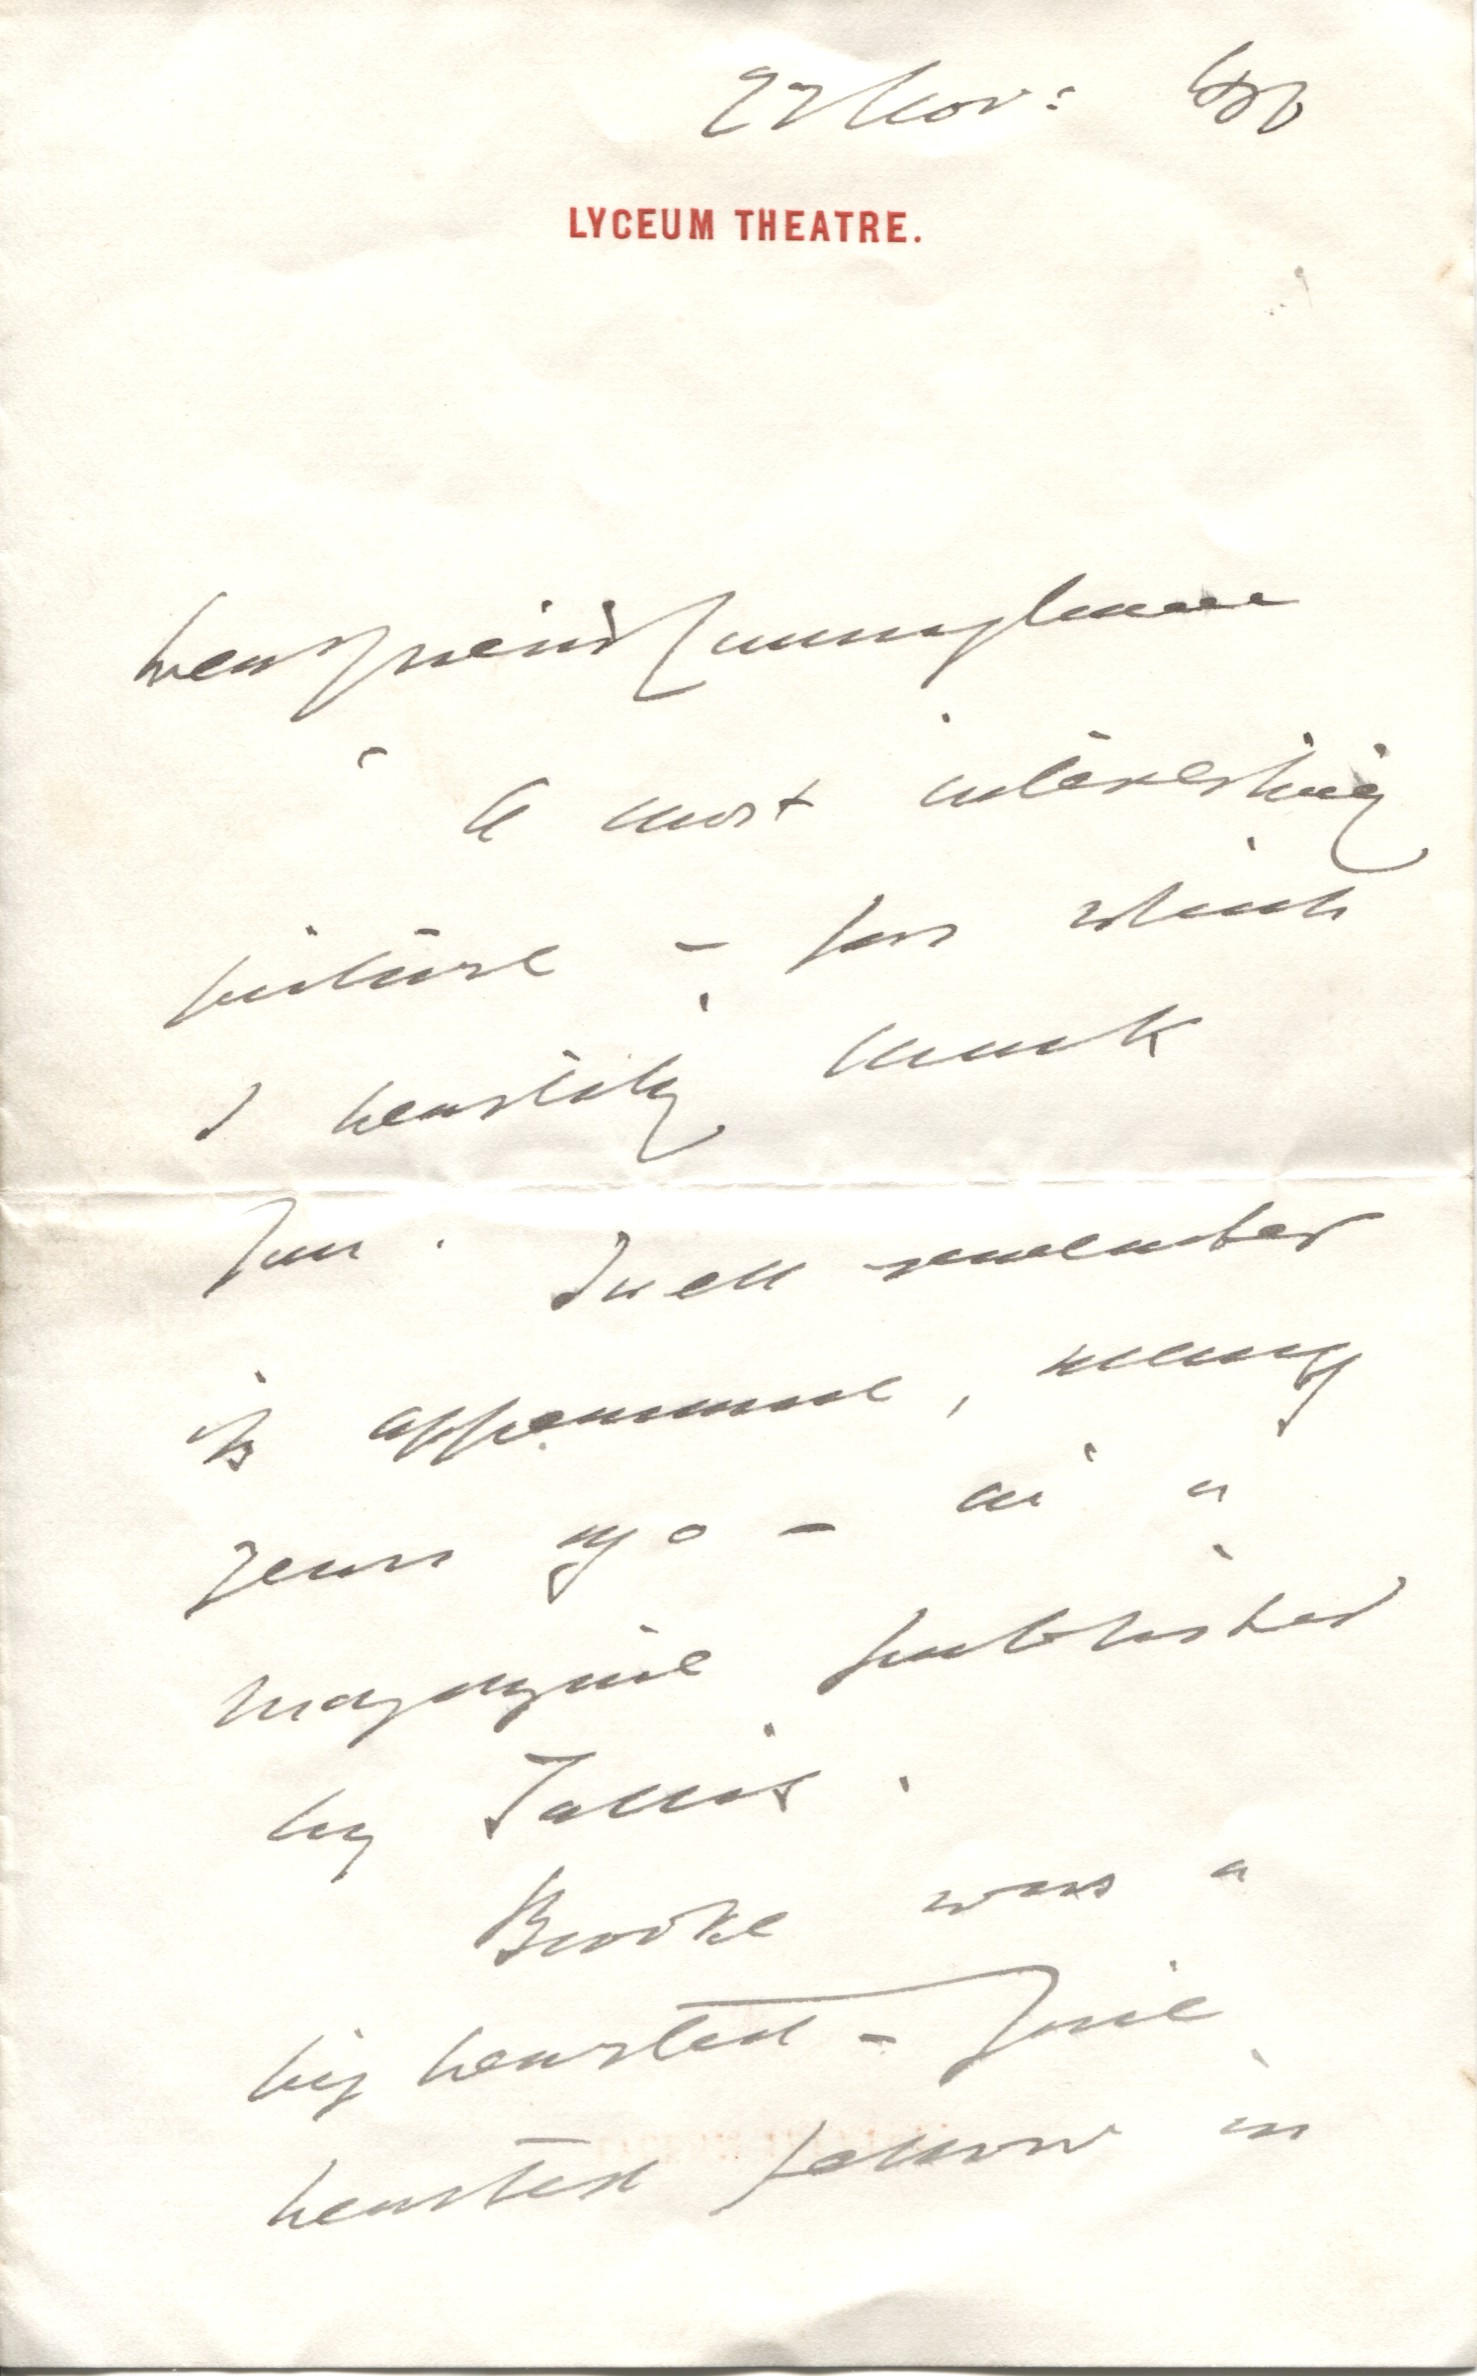 22 Nov:
LYCEUM THEATRE.
Dear friend Cunynghame
A most interesting
picture – for which
I heartily thank
you. I well remember
its appearance, many
years ago – in a
magazine published
by Tallis.
Brooke was a
big hearted – fine
hearted fellow in